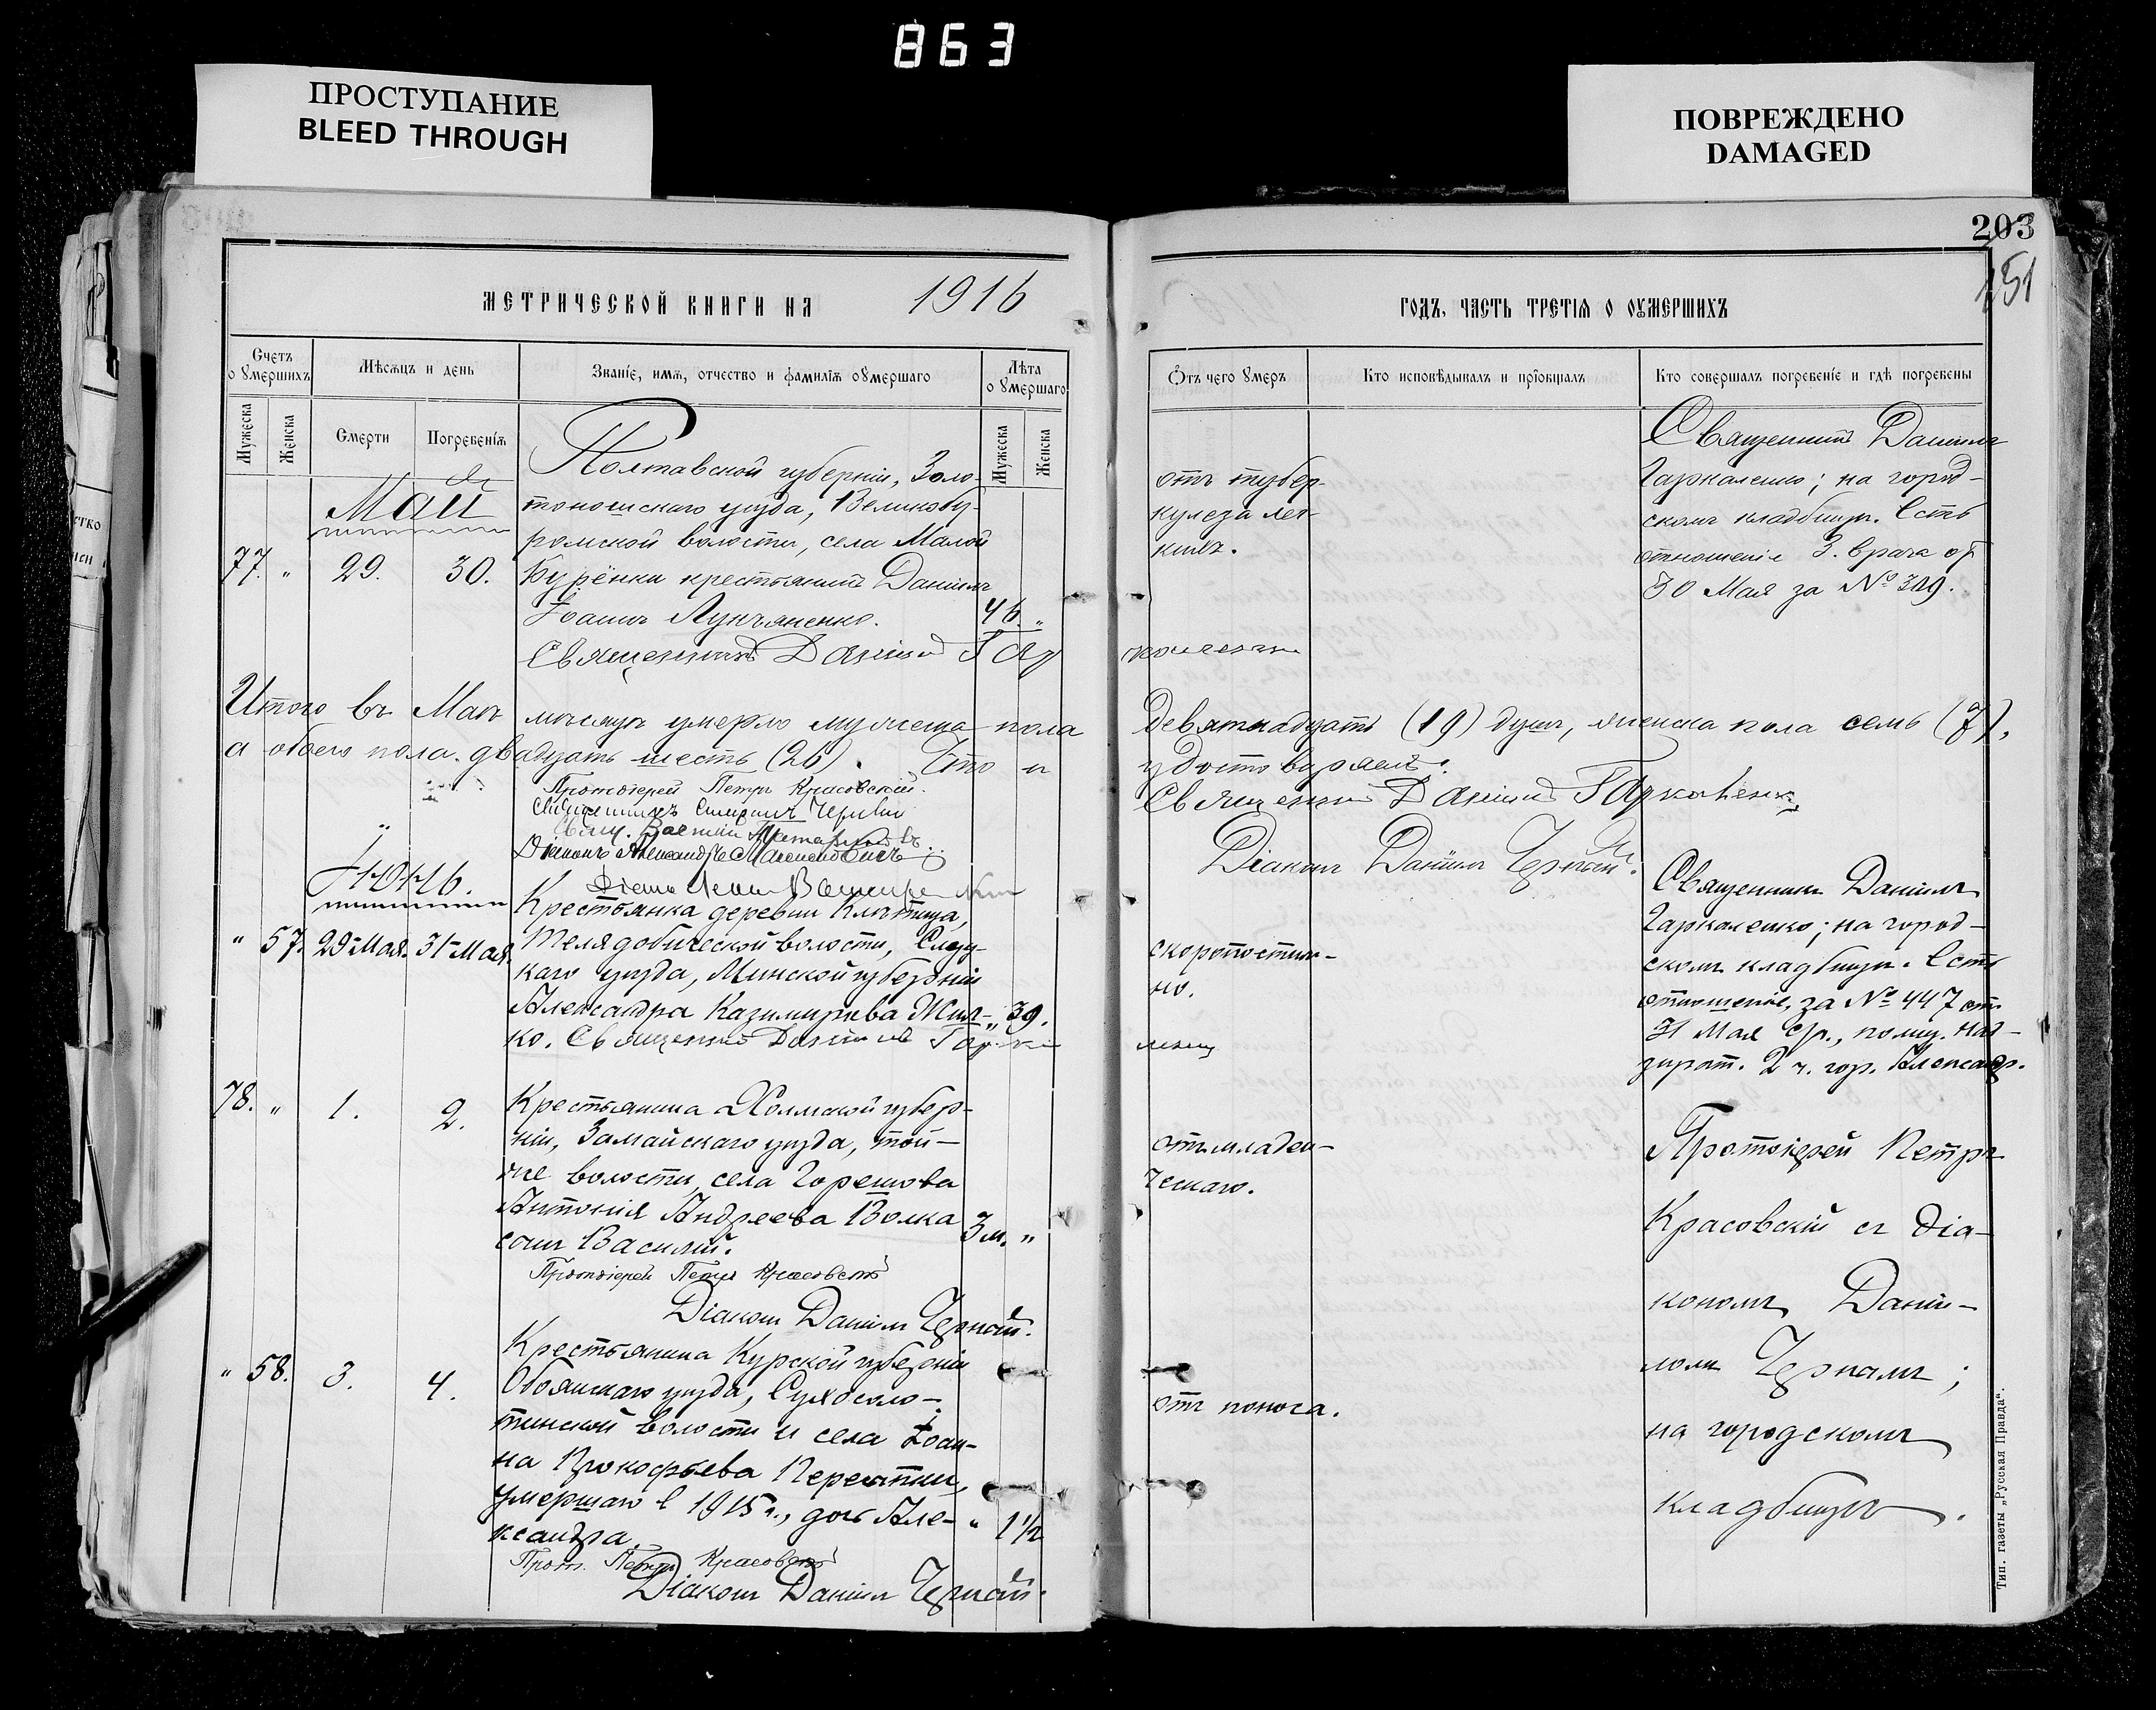 863
ПРОСТУПАНИЕ
BLEED THROUGH
ПОВРЕЖДЕНО
DAMAGED
203
151
МЕТРИЧЕСКОЙ КНИГИ НА 1916
ГОДЪ, ЧАСТЬ ТРЕТІЯ О ОУМЕРШИХЪ
Счетъ о умершихъ
Мѣсяцъ и день
Званіе, имя, отчество и фамилія оумершаго
Лѣта оумершаго
Мужеска
Женска
Смерти
Погребенія
Мужеска
Женска
Отъ чего умеръ
Кто исповѣдывалъ и пріобщалъ
Кто совершалъ погребеніе и гдѣ погребены
Май
77. " 29. 30.
Полтавской губерніи, Золо-
тоношскаго уѣзда, Великобу-
ромской волости, села Малой
Бурёнки крестьянинъ Даніилъ
Іоанновъ
46. "
Священникъ Даніилъ Гаркавенко
отъ тубер-
кулеза лег-
кихъ.
Священникъ Даніилъ
Гаркавенко; на город-
скомъ кладбищѣ. Есть
отношеніе З. врача отъ
30 Мая за № 309.
Итого въ Маѣ мѣсяцѣ умерло мужеска пола девятнадцать (19) душъ, женска пола семь (7),
а обоего пола двадцать шесть (26). Что и удостовѣряемъ:
Протоіерей Петръ Красовскій.
Священникъ
Свящ.
Діаконъ Александръ
Діаконъ
Священникъ Даніилъ Гаркавенко
Діаконъ Даніилъ Чернай.
Іюнь.
" 57. 29 Мая. 31 Мая.
Крестьянка деревни
волости, Слуц-
каго уѣзда, Минской губерніи
Александра Казимирова Жил-
ко.
" 39.
Священникъ Даніилъ Гаркавенко
скоропостиж-
но.
Священникъ Даніилъ
Гаркавенко; на город-
скомъ кладбищѣ. Есть
отношеніе, за № 447 отъ
31 Мая с/г., помощ. над-
зират. 2 ч. гор. Александр.
78. " 1. 2.
Крестьянина Холмской губер-
ніи, Замойскаго уѣзда, той-
же волости, села Горешова
Антонія Андреева Волка
сынъ Василій.
3 м. "
Протоіерей Петръ Красовскій
Діаконъ Даніилъ Чернай.
отъ младен-
ческаго.
Протоіерей Петръ
Красовскій съ діа-
кономъ Даніи-
ломъ Чернаемъ;
на городскомъ
кладбищѣ.
" 58. 3. 4.
Крестьянина Курской губерніи
Обоянскаго уѣзда, Сухосоло-
тинской волости и села Іоан-
на Прокофьева
умершаго в 1915 г., дочь Але-
ксандра.
" 1½
Прот. Петръ Красовскій
Діаконъ Даніилъ Чернай.
отъ поноса.
Тип. газеты „Русская Правда“.